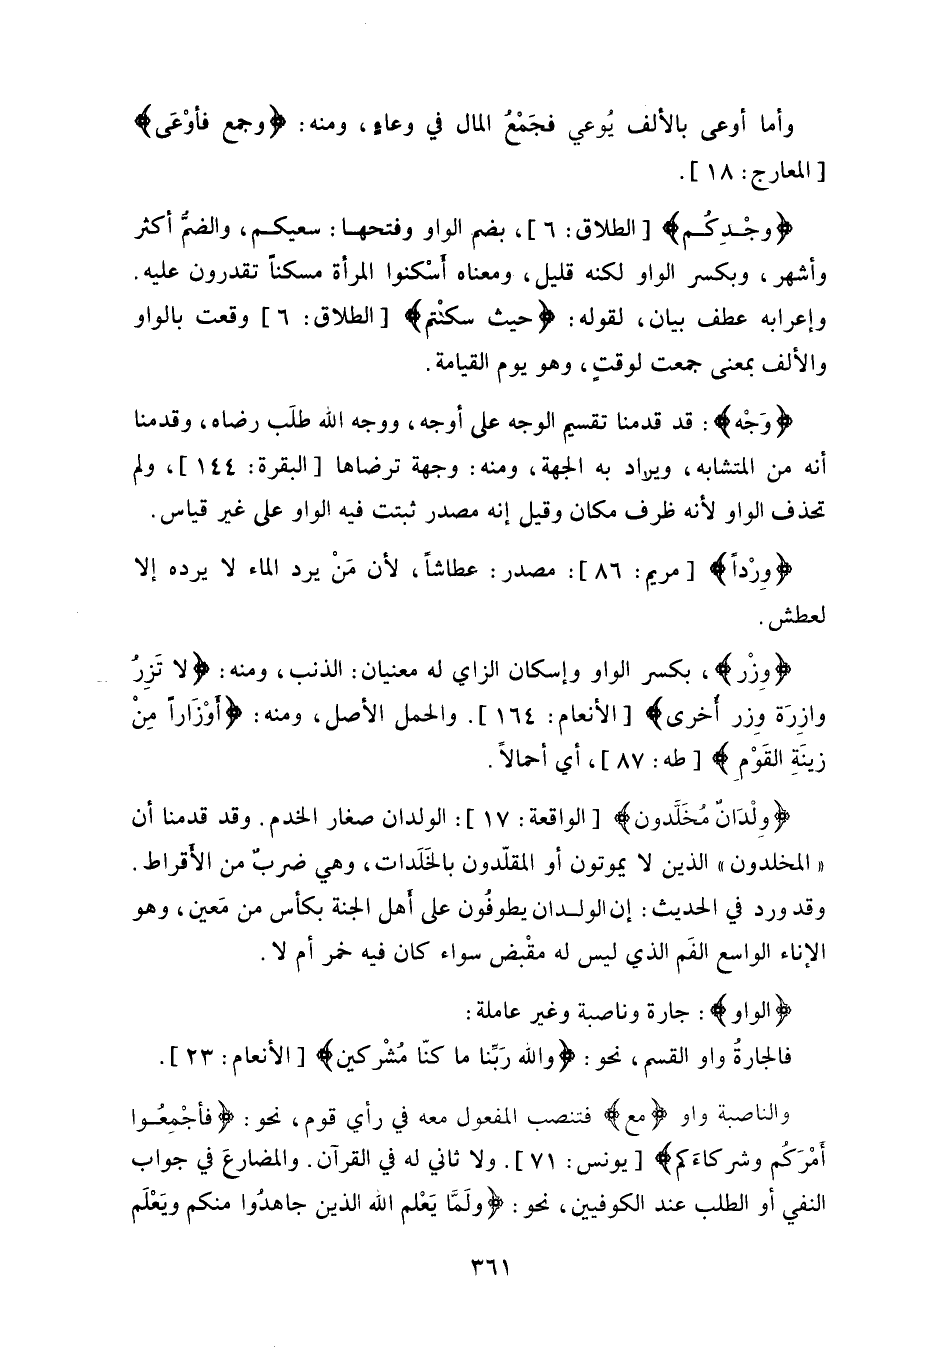 وأما أوعى بالألف يُوعي فجَمْعُ المال في وعاءٍ، ومنه: ﴿وجمع فأوْعَى﴾
[المعارج: ١٨].
﴿وجْـدِكُـم﴾ [الطلاق: ٦]، بضم الواو وفتحهـا: سعيكـم، والضمُّ أكثر
وأشهر، وبكسر الواو لكنه قليل، ومعناه أَسْكنوا المرأة مسكناً تقدرون عليه.
وإعرابه عطف بيان، لقوله: ﴿حيث سكنْتم﴾ [الطلاق: ٦] وقعت بالواو
والألف بمعنى جمعت لوقتٍ، وهو يوم القيامة.
﴿وَجْه﴾: قد قدمنا تقسيم الوجه على أوجه، ووجه الله طلَب رضاه، وقدمنا
أنه من المتشابه، ويراد به الجهة، ومنه: وجهة ترضاها [البقرة: ١٤٤]، ولم
تحذف الواو لأنه ظرف مكان وقيل إنه مصدر ثبتت فيه الواو على غير قياس.
﴿وِرْداً﴾ [مريم: ٨٦]: مصدر: عطاشاً، لأن مَنْ يرد الماء لا يرده إلا
لعطش.
﴿وِزْر﴾، بكسر الواو وإسكان الزاي له معنيان: الذنب، ومنه: ﴿لا تَزِرُ
وازِرَة وِزر أُخرى﴾ [الأنعام: ١٦٤]. والحمل الأصل، ومنه: ﴿أَوْزَاراً مِنْ
زِينَةِ القَوْمِ﴾ [طه: ٨٧]، أي أحمالاً.
﴿وِلْدَانٌ مُخَلَّدون﴾ [الواقعة: ١٧]: الولدان صغار الخدم. وقد قدمنا أن
«المخلدون» الذين لا يموتون أو المقلّدون بالخَلَدات، وهي ضربٌ من الأقراط.
وقد ورد في الحديث: إن الولـدان يطوفُون على أهل الجنة بكأس من مَعين، وهو
الإناء الواسع الفَم الذي ليس له مقْبض سواء كان فيه خمر أم لا.
﴿الواو﴾: جارة وناصبة وغير عاملة:
فالجارةُ واو القسم، نحو: ﴿والله رَبِّنا ما كنّا مُشْركين﴾ [الأنعام: ٢٣].
والناصبة واو ﴿مع﴾ فتنصب المفعول معه في رأي قوم، نحو: ﴿فأجْمِعُـوا
أَمْرَكُم وشركاءَكم﴾ [يونس: ٧١]. ولا ثاني له في القرآن. والمضارعَ في جواب
النفي أو الطلب عند الكوفيين، نحو: ﴿ولَمَّا يَعْلم الله الذين جاهدُوا منكم ويَعْلَم
٣٦١